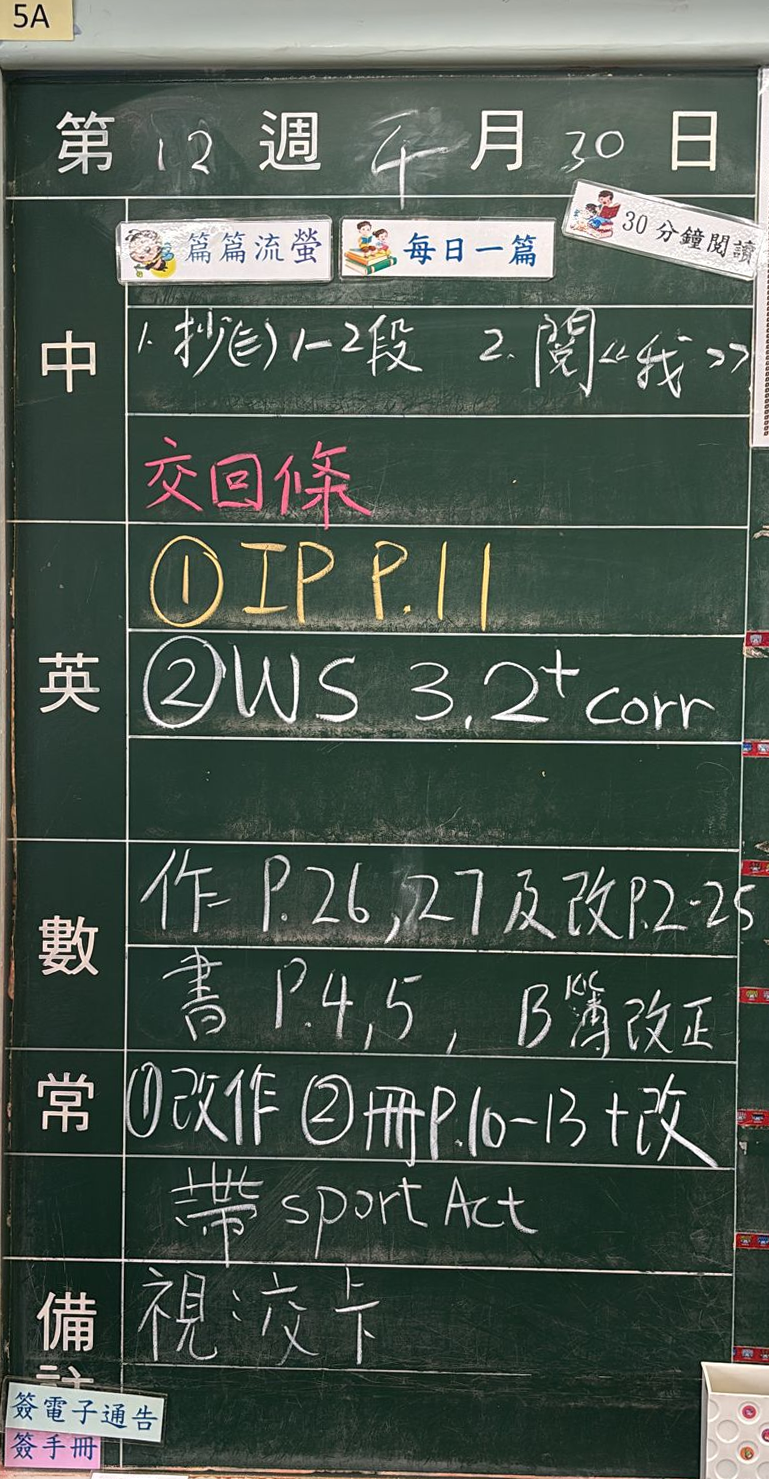 5A
第 12 週 千 月 30 日
篇篇流螢 每日一篇 30分鐘閱讀
中
1. 抄(三) 1-2段 2. 閱《我》
交回條
英
① IP P.11
② WS 3.2 + corr
數
作 P.26, 27 及 改 P.2-25
書 P.4, 5, B簿改正
常
① 改作 ② 冊 P.10-13 + 改
帶 sport Act
備註
視:交卡
簽電子通告
簽手冊